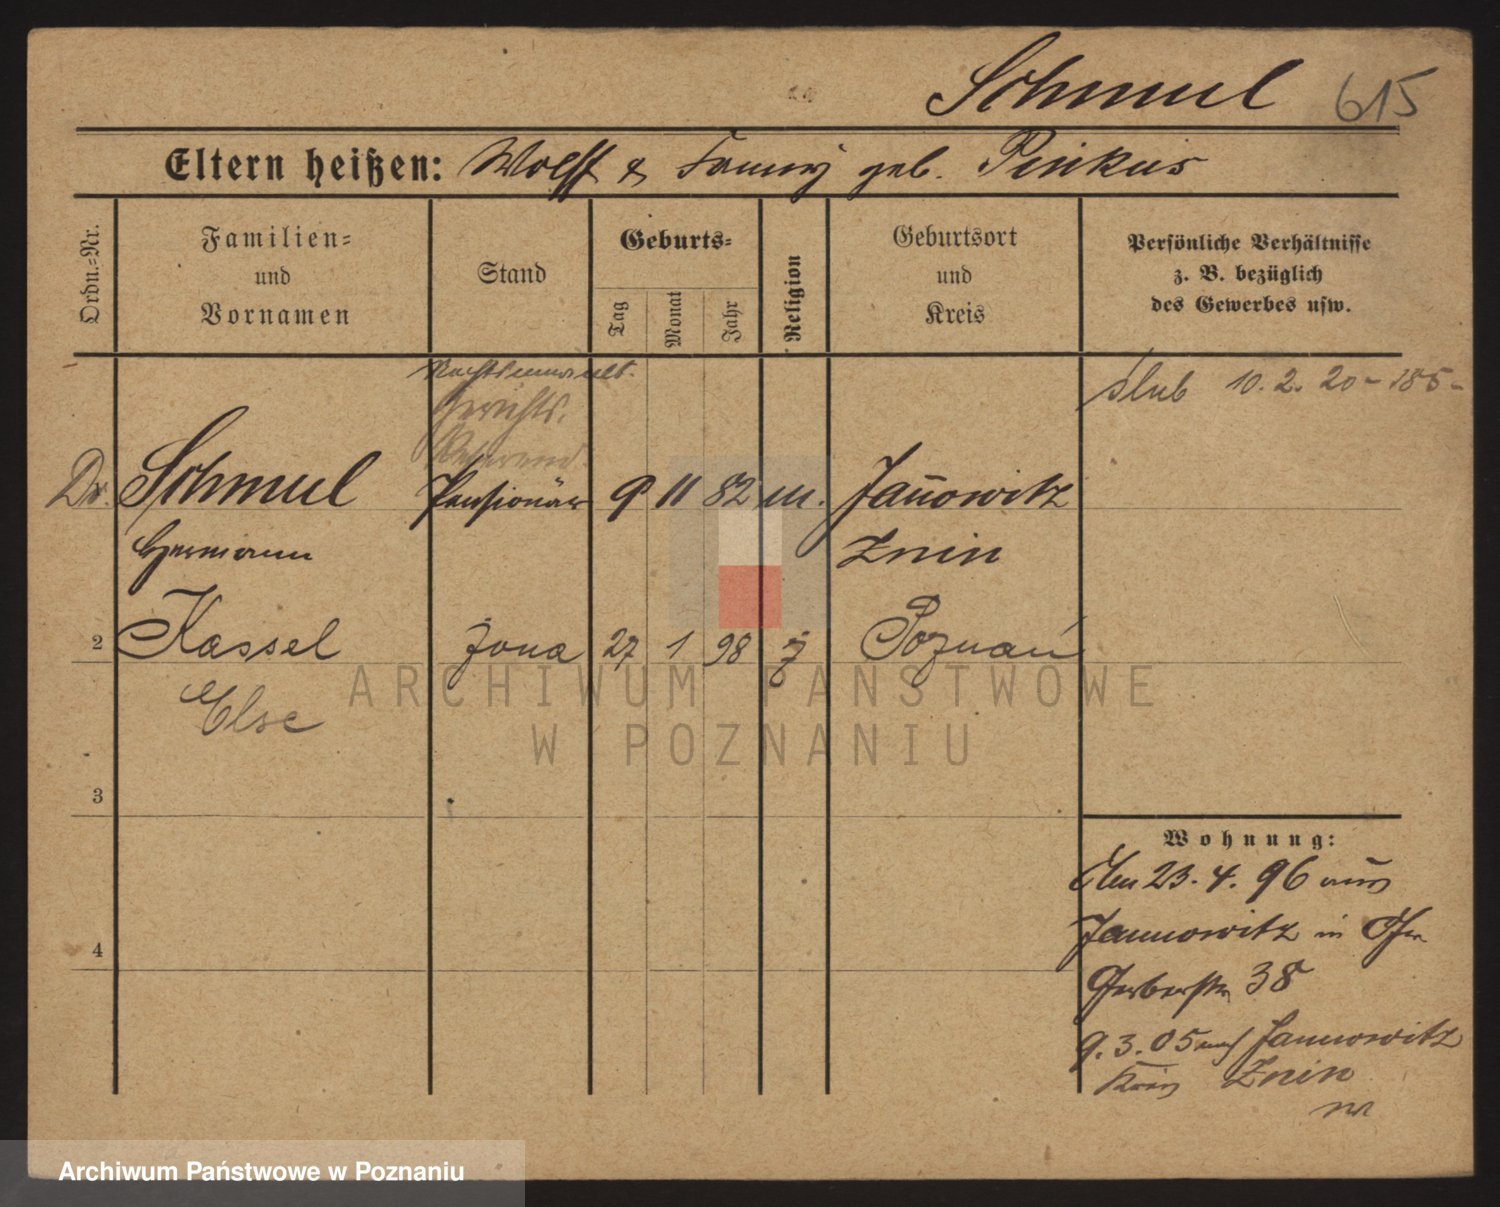 Schmul 615
Eltern heißen: Wolff & Fanny geb. Pinkus
Ordn.=Nr.
Familien=
und
Vornamen
Stand
Geburts=
Tag
Monat
Jahr
Religion
Geburtsort
und
Kreis
Persönliche Verhältnisse
z. B. bezüglich
des Gewerbes usw.
Rechtsanwalt.
Gerichts.
Referend.
ślub 10. 2. 20 - 185 -
Dr. Schmul Pensionär 9 11 82 m. Jan̄owitz
Hermann Znin
2 Kassel żona 27 1 98 ż Poznań
Else
3
4
Wohnung:
Am 23. 4. 96 aus
Jannowitz in
Gerberstr 38
9. 3. 05 nach Jannowitz
Kreis Znin
ARCHIWUM PAŃSTWOWE
W POZNANIU
Archiwum Państwowe w Poznaniu